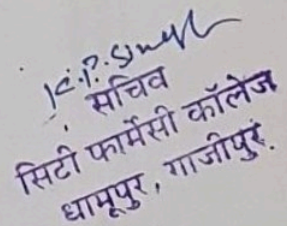 K.P. Singh
सचिव
सिटी फार्मेसी कॉलेज
धामूपुर, गाजीपुर.